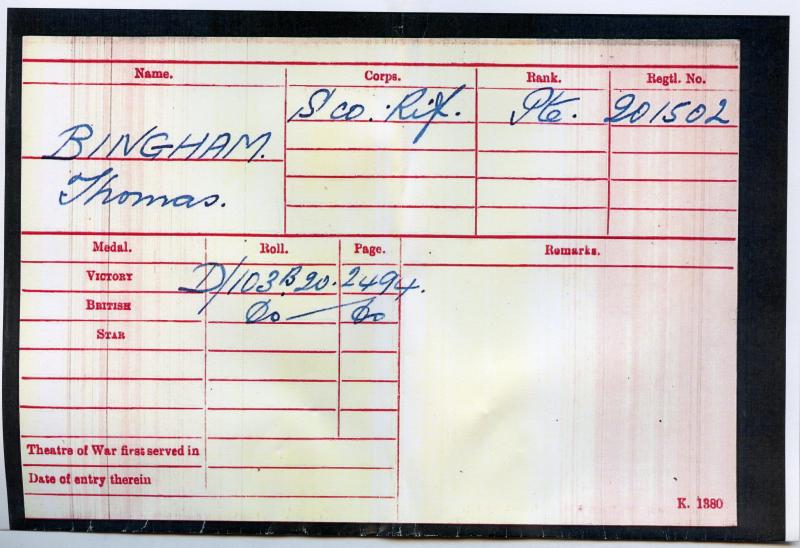 Name. Corps. Rank. Regtl. No.
S'co. Rif. Pte. 201502
BINGHAM.
Thomas.
Medal. Roll. Page. Remarks.
VICTORY D/103 B 20. 2494.
BRITISH Do Do
STAR
Theatre of War first served in
Date of entry therein
K. 1380